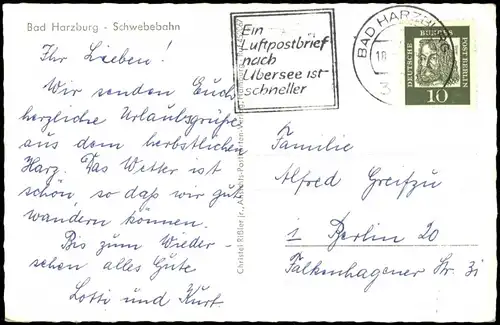 Bad Harzburg - Schwebebahn
Ihr Lieben!
Wir senden Euch
herzliche Urlaubsgrüße
aus dem herbstlichen
Harz. Das Wetter ist
schön, so daß wir gut
wandern können.
Bis zum Wieder-
sehen alles Gute
Lotti und Kurt.
Christel Rißler jr.,
Ein
Luftpostbrief
nach
Übersee ist
schneller
BAD HARZBURG
18.
3
DEUTSCHE
BUNDES
POST BERLIN
10
Familie
Alfred Greifzu
1 Berlin 20
Falkenhagener Str. 31